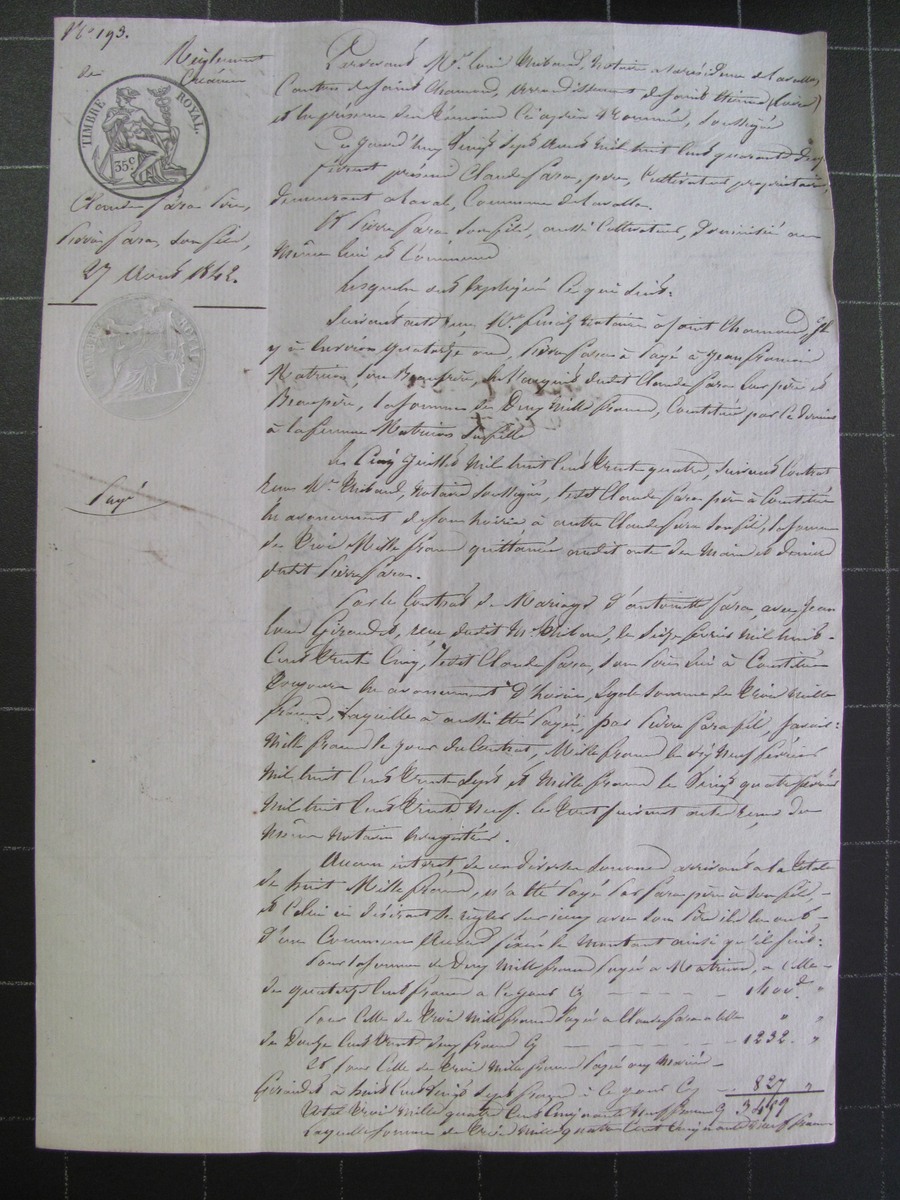 N° 193.
Règlement
de Créance
TIMBRE ROYAL.
35 c
Claude Fara père,
Pierre Fara, son fils,
27 Août 1842.
Payé
Pardevant Me Louis Thibaud, Notaire à la résidence de Lavalla,
Canton de Saint Chamond, arrondissement de Saint Etienne (Loire)
et en présence des témoins ci après nommés, soussignés
Ce jourd'huy vingt sept Août mil huit cent quarante deux
furent présens Claude Fara, père, Cultivateur propriétaire,
demeurant à Laval, Commune de Lavalla.
Et Pierre Fara son fils, aussi Cultivateur, domicilié au
même lieu et Commune
Lesquels ont expliqué ce qui suit:
Suivant acte reçu Me Finaz notaire à Saint Chamond, il
y à environ quatorze ans, Pierre Fara à payé à Jean François
Matricon, son Beaufrère, à l'acquit dudit Claude Fara leur père et
Beaupère, la somme de Deux mille francs, Constituée par ce dernier
à la femme Matricon sa fille
Le Cinq Juillet mil huit cent trente quatre, suivant Contrat
reçu Me Thibaud, Notaire soussigné, ledit Claude Fara père à Constitué
en avancement de son hoirie à autre Claude Fara son fils, la somme
de trois mille francs quittancée audit acte des mains et deniers
dudit Pierre Fara.
Par le Contrat de Mariage d'antoinette Fara, avec Jean
Louis Giraudet, reçu dudit Me Thibaud, le seize février mil huit
Cent trente Cinq, ledit Claude Fara, son père lui à Constitué
toujours en avancement d'hoirie, Pareille somme de trois mille
francs, laquelle à aussi été payée, par Pierre Fara fils, savoir:
Mille francs le jour du Contrat, Mille francs le dix neuf février
mil huit cent trente sept, et mille francs le vingt quatre février
mil huit cent trente neuf. le tout suivant actes reçus du
même notaire enregistrés.
Aucun intérêt de ces diverses sommes, arrivant à la totale
de huit mille francs, n'a été payé par Fara père à son fils,
et Celui ci désirant se régler sur iceux avec son père ils en ont
d'un Commun Accord fixé le montant ainsi qu'il suit:
Pour la somme de Deux mille francs payée à Matricon, à Celle
de quatorze Cent francs à ce jour Cy 1400.
Pour Celle de trois mille francs payée à Claude Fara à celle
de Douze Cent trente deux francs Cy 1232.
Et pour Celle de trois mille francs payée aux mariés
Giraudet à huit Cent vingt sept francs à ce jour Cy 827
Total trois mille quatre Cent Cinquante neuf francs Cy 3459
Laquelle somme de trois mille quatre Cent Cinquante neuf francs